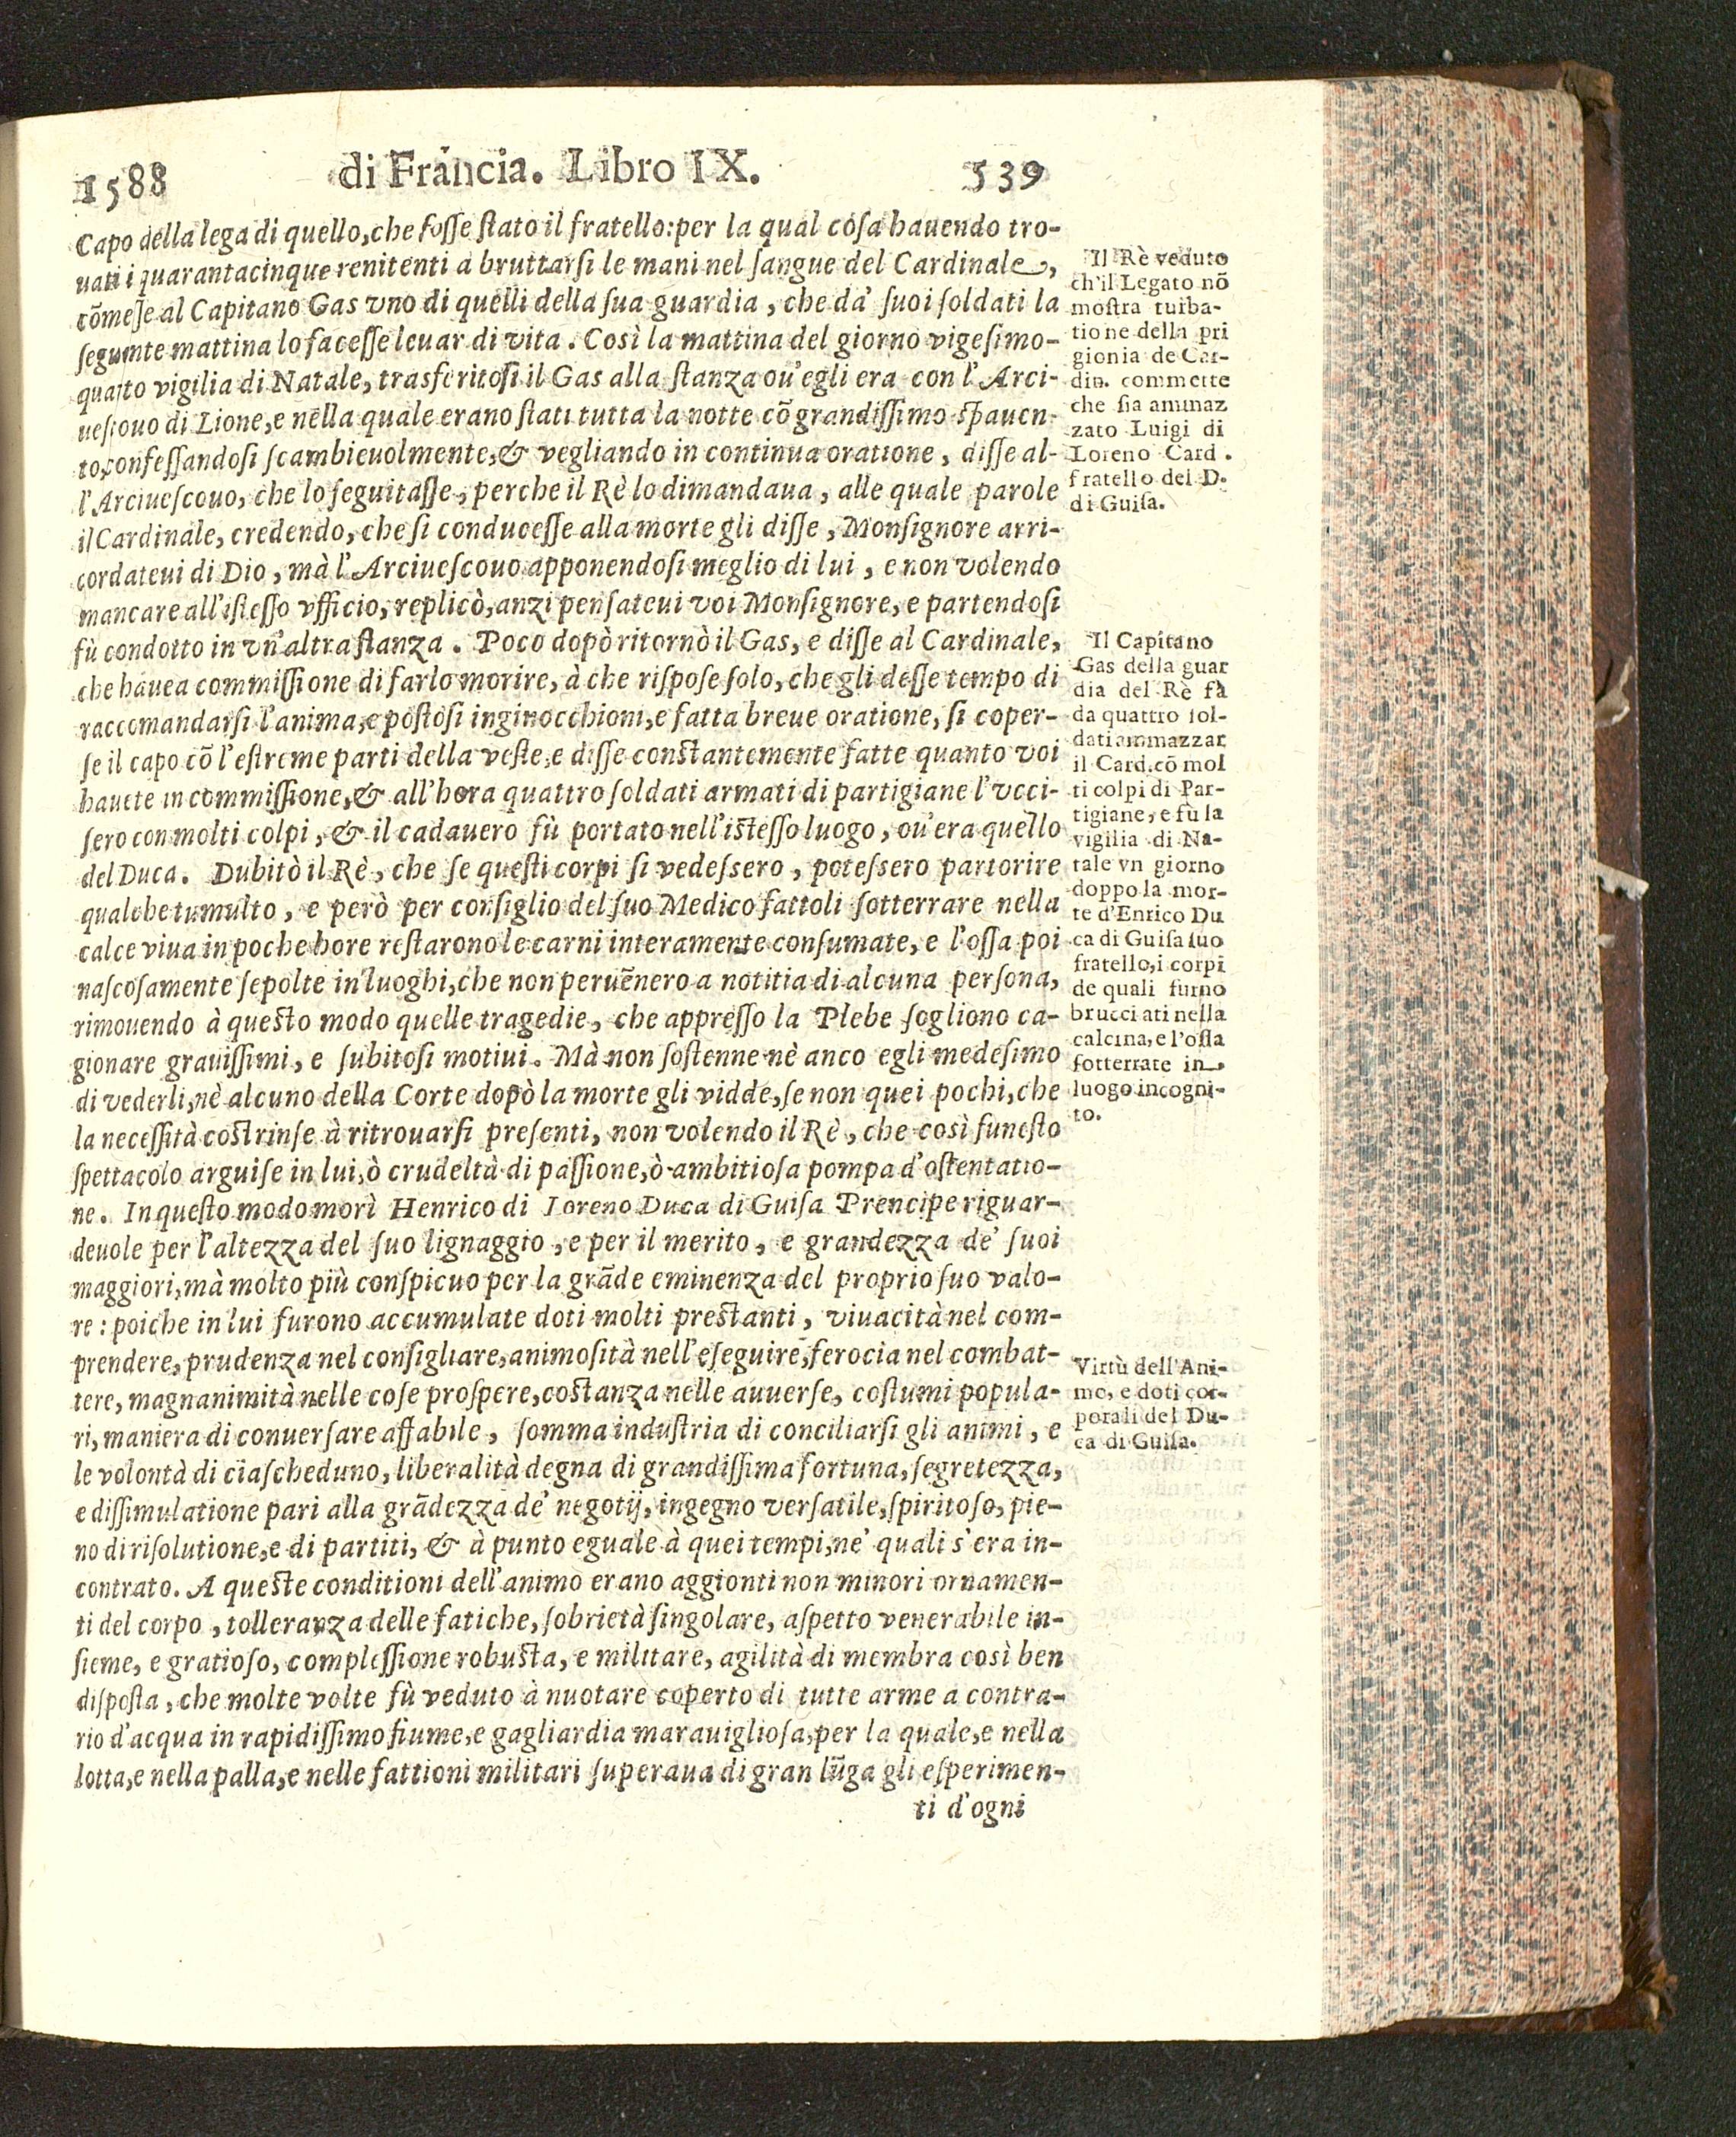 1588 di Francia. Libro IX. 539
Capo della lega di quello, che foſſe ſtato il fratello: per la qual coſa hauendo tro-
uati i quarantacinque renitenti a bruttarſi le mani nel ſangue del Cardinale,
cõmeſe al Capitano Gas vno di quelli della ſua guardia, che da' ſuoi ſoldati la
ſeguente mattina lo faceſſe leuar di vita. Così la mattina del giorno vigeſimo-
quarto vigilia di Natale, trasferitoſi il Gas alla ſtanza ou'egli era con l'Arci-
ueſcouo di Lione, e nella quale erano ſtati tutta la notte cõ grandiſſimo ſpauen-
to, confeſſandoſi ſcambieuolmente, & vegliando in continua oratione, diſſe al-
l'Arciueſcouo, che lo ſeguitaſſe, perche il Rè lo dimandaua, alle quale parole
il Cardinale, credendo, che ſi conduceſſe alla morte gli diſſe, Monſignore arri-
cordateui di Dio, mà l'Arciueſcouo apponendoſi meglio di lui, e non volendo
mancare all'iſteſſo vfficio, replicò, anzi penſateui voi Monſignore, e partendoſi
fù condotto in vn'altra ſtanza. Poco dopò ritornò il Gas, e diſſe al Cardinale,
che hauea commiſſione di farlo morire, à che riſpoſe ſolo, che gli deſſe tempo di
raccomandarſi l'anima, e poſtoſi inginocchioni, e fatta breue oratione, ſi coper-
ſe il capo cõ l'eſtreme parti della veſte, e diſſe conſtantemente fatte quanto voi
hauete in commiſſione, & all'hora quattro ſoldati armati di partigiane l'vcci-
ſero con molti colpi, & il cadauero fù portato nell'iſteſſo luogo, ou'era quello
del Duca. Dubitò il Rè, che ſe queſti corpi ſi vedeſsero, poteſsero partorire
qualche tumulto, e però per conſiglio del ſuo Medico fattoli ſotterrare nella
calce viua in poche hore reſtarono le carni interamente conſumate, e l'oſſa poi
naſcoſamente ſepolte in luoghi, che non peruẽnero a notitia di alcuna perſona,
rimouendo à queſto modo quelle tragedie, che appreſſo la Plebe ſogliono ca-
gionare grauiſſimi, e ſubitoſi motiui. Mà non ſoſtenne nè anco egli medeſimo
di vederli, nè alcuno della Corte dopò la morte gli vidde, ſe non quei pochi, che
la neceſſità coſtrinſe à ritrouarſi preſenti, non volendo il Rè, che così funeſto
ſpettacolo arguiſe in lui, ò crudeltà di paſſione, ò ambitioſa pompa d'oſtentatio-
ne. In queſto modo morì Henrico di Loreno Duca di Guiſa Prencipe riguar-
deuole per l'altezza del ſuo lignaggio, e per il merito, e grandezza de' ſuoi
maggiori, mà molto più conſpicuo per la grãde eminenza del proprio ſuo valo-
re: poiche in lui furono accumulate doti molti preſtanti, viuacità nel com-
prendere, prudenza nel conſigliare, animoſità nell'eſeguire, ferocia nel combat-
tere, magnanimità nelle coſe proſpere, coſtanza nelle auuerſe, coſtumi popula-
ri, maniera di conuerſare affabile, ſomma induſtria di conciliarſi gli animi, e
le volontà di ciaſcheduno, liberalità degna di grandiſſima fortuna, ſegretezza,
e diſſimulatione pari alla grãdezza de' negotij, ingegno verſatile, ſpiritoſo, pie-
no di riſolutione, e di partiti, & à punto eguale à quei tempi, ne' quali s'era in-
contrato. A queſte conditioni dell'animo erano aggionti non minori ornamen-
ti del corpo, tolleranza delle fatiche, ſobrietà ſingolare, aſpetto venerabile in-
ſieme, e gratioſo, compleſſione robuſta, e militare, agilità di membra così ben
diſpoſta, che molte volte fù veduto à nuotare coperto di tutte arme a contra-
rio d'acqua in rapidiſſimo fiume, e gagliardia marauiglioſa, per la quale, e nella
lotta, e nella palla, e nelle fattioni militari ſuperaua di gran lũga gli eſperimen-
ti d'ogni
Il Rè veduto
ch'il Legato nõ
moſtra turba-
tione della pri
gionia de Car-
din. commette
che ſia ammaz
zato Luigi di
Loreno Card.
fratello del D.
di Guiſa.
Il Capitano
Gas della guar
dia del Rè fà
da quattro ſol-
dati ammazzar
il Card. cõ mol
ti colpi di Par-
tigiane, e fù la
vigilia di Na-
tale vn giorno
doppo la mor-
te d'Enrico Du
ca di Guiſa ſuo
fratello, i corpi
de quali furno
brucciati nella
calcina, e l'oſſa
ſotterrate in
luogo incogni-
to.
Virtù dell'Ani-
mo, e doti cor-
porali del Du-
ca di Guiſa.